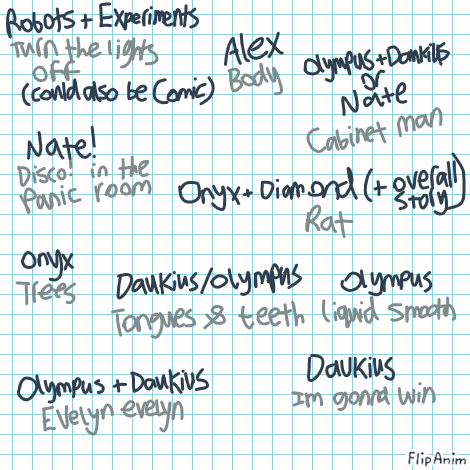 Robots + Experiments
Turn the lights
off
(could also be Comic)
Alex
Body
Olympus + Daukius
or
Nate
Cabinet man
Nate!
Disco! in the
Panic room
Onyx + Diamond (+ overall
story)
Rat
Onyx
Trees
Daukius/Olympus
Tongues & teeth
Olympus
liquid smooth
Olympus + Daukius
Evelyn evelyn
Daukius
Im gonna win
FlipAnim